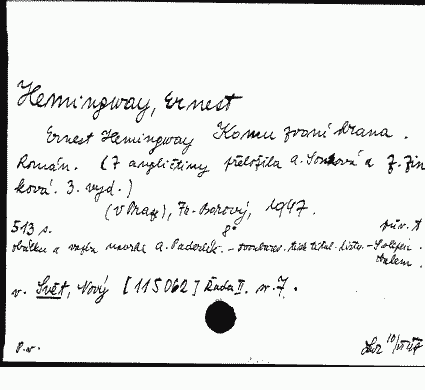 Hemingway, Ernest
Ernest Hemingway Komu zvoní hrana.
Román. (Z angličtiny přeložila A. Sonková a Z. Zin
ková. 3. vyd.)
(V Praze), Fr. Borový, 1947.
513 s. 8°
obálku a vazbu navrhl A. Paderlík. –
v. Svět, Nový [115062] Řada II. sv. 7.
P.w.